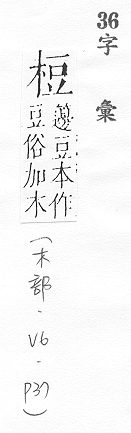 36
字彙
梪
籩豆本作
豆俗加木
(木部-V6-P37)